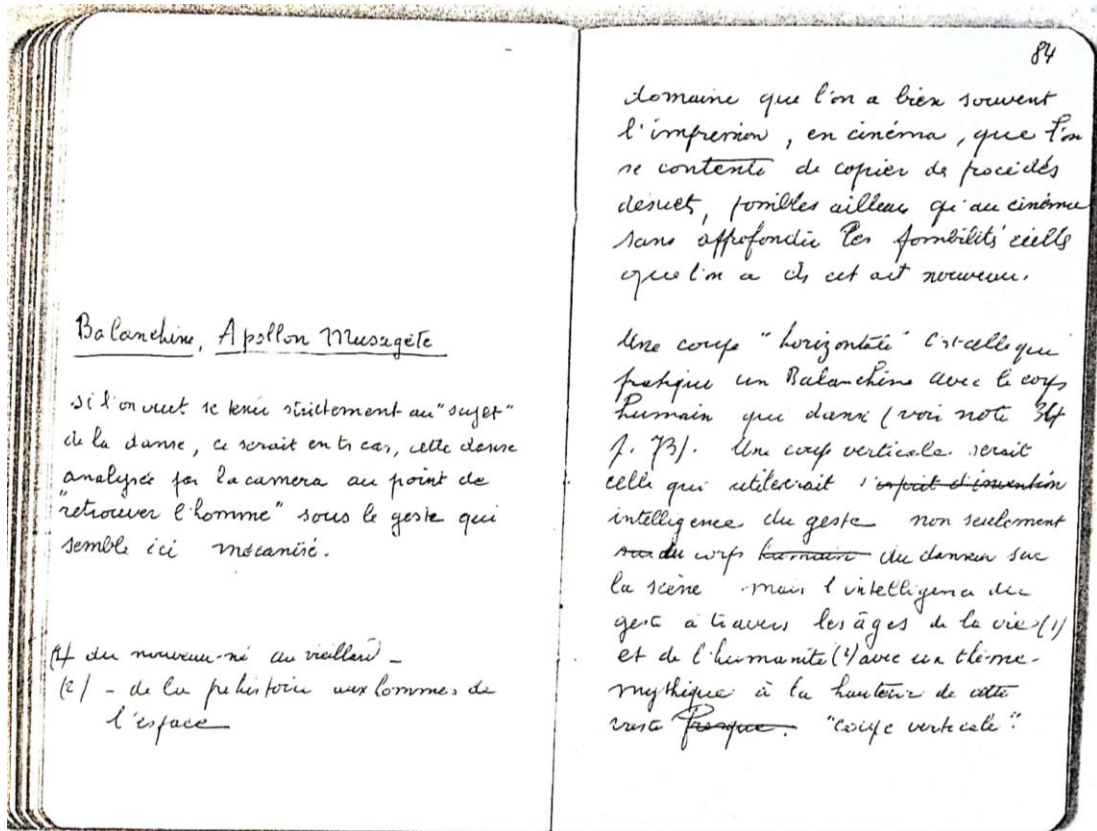 Balanchine, Apollon Musagète
si l'on veut se tenir strictement au "sujet"
de la danse, ce serait en ts cas, cette danse
analysée par la camera au point de
"retrouver l'homme" sous le geste qui
semble ici mécanisé.
(1) du nouveau-né au vieillard -
(2) - de la préhistoire aux hommes de
l'espace
84
domaine que l'on a bien souvent
l'impression, en cinéma, que l'on
se contente de copier des procédés
désuets, possibles ailleurs qu'au cinéma
sans approfondir les possibilités
que l'on a ds cet art nouveau.
Une coupe "horizontale" c'est celle qui
pratique un Balanchine avec le corps
humain qui danse (voir note 34
p. 73). Une coupe verticale serait
celle qui utiliserait l'esprit d'invention
intelligence du geste non seulement
du corps humain du danseur sur
la scène mais l'intelligence du
geste à travers les âges de la vie (1)
et de l'humanité (2) avec un thème
mythique à la hauteur de cette
vaste fresque. "coupe verticale".